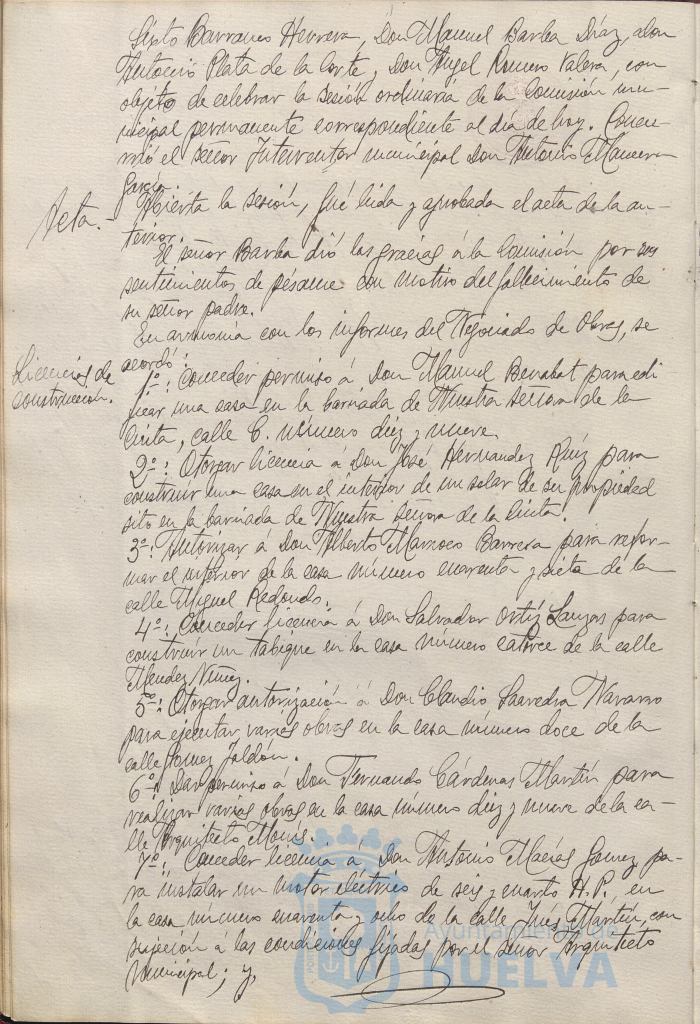 Sixto Barranco Herrera, Don Manuel Barba Díaz, don
Antonio Plata de la Corte y Don Angel Romero Valera, con
objeto de celebrar la sesión ordinaria de la Comisión mu-
nicipal permanente correspondiente al día de hoy. Concu-
rrió el señor Interventor municipal Don Antonio
García.
Acta.-
Abierta la sesión, fué leida y aprobada el acta de la an-
terior.
El señor Barba dió las gracias á la Comisión por sus
sentimientos de pésame con motivo del fallecimiento de
su señor padre.
En armonía con los informes del Negociado de Obras, se
acordó:
Licencias de
construcción.
1º: Conceder permiso á Don Manuel Benabat para edi
ficar una casa en la barriada de Nuestra Señora de la
Cinta, calle C. número diez y nueve.
2º: Otorgar licencia á Don José Hernandez Ruíz para
construir una casa en el interior de un solar de su propiedad
sito en la barriada de Nuestra Señora de la Cinta.
3º: Autorizar á Don Alberto Barrera para refor-
mar el interior de la casa número cuarenta y siete de la
calle Miguel Redondo.
4º: Conceder licencia á Don Salvador Ortíz para
construir un tabique en la casa número catorce de la calle
Mendez Nuñez.
5º: Otorgar autorización á Don Claudio Saavedra Navarro
para ejecutar varias obras en la casa número doce de la
calle Gomez Jaldón.
6º: Dar permiso á Don Fernando Cárdenas Martín para
realizar varias obras en la casa número diez y nueve de la ca-
lle Arquitecto Monis.
7º: Conceder licencia á Don Antonio Macías Gomez pa-
ra instalar un motor eléctrico de seis y cuarto H.P., en
la casa número cuarenta y ocho de la calle Inés Martín, con
sujeción á las condiciones fijadas por el señor Arquitecto
municipal; y,
Ayuntamiento de
HUELVA